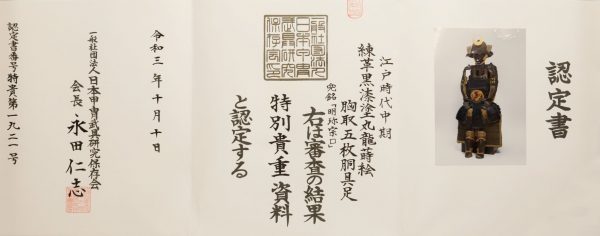 認定書
江戸時代中期
練革黒漆塗丸龍蒔絵
胸取五枚胴具足
兜銘「明珎宗□」
右は審査の結果
特別貴重資料
と認定する
令和三年十月十日
一般社団法人日本甲冑武具研究保存会
会長 永田仁志
認定書番号特貴第一九二一号